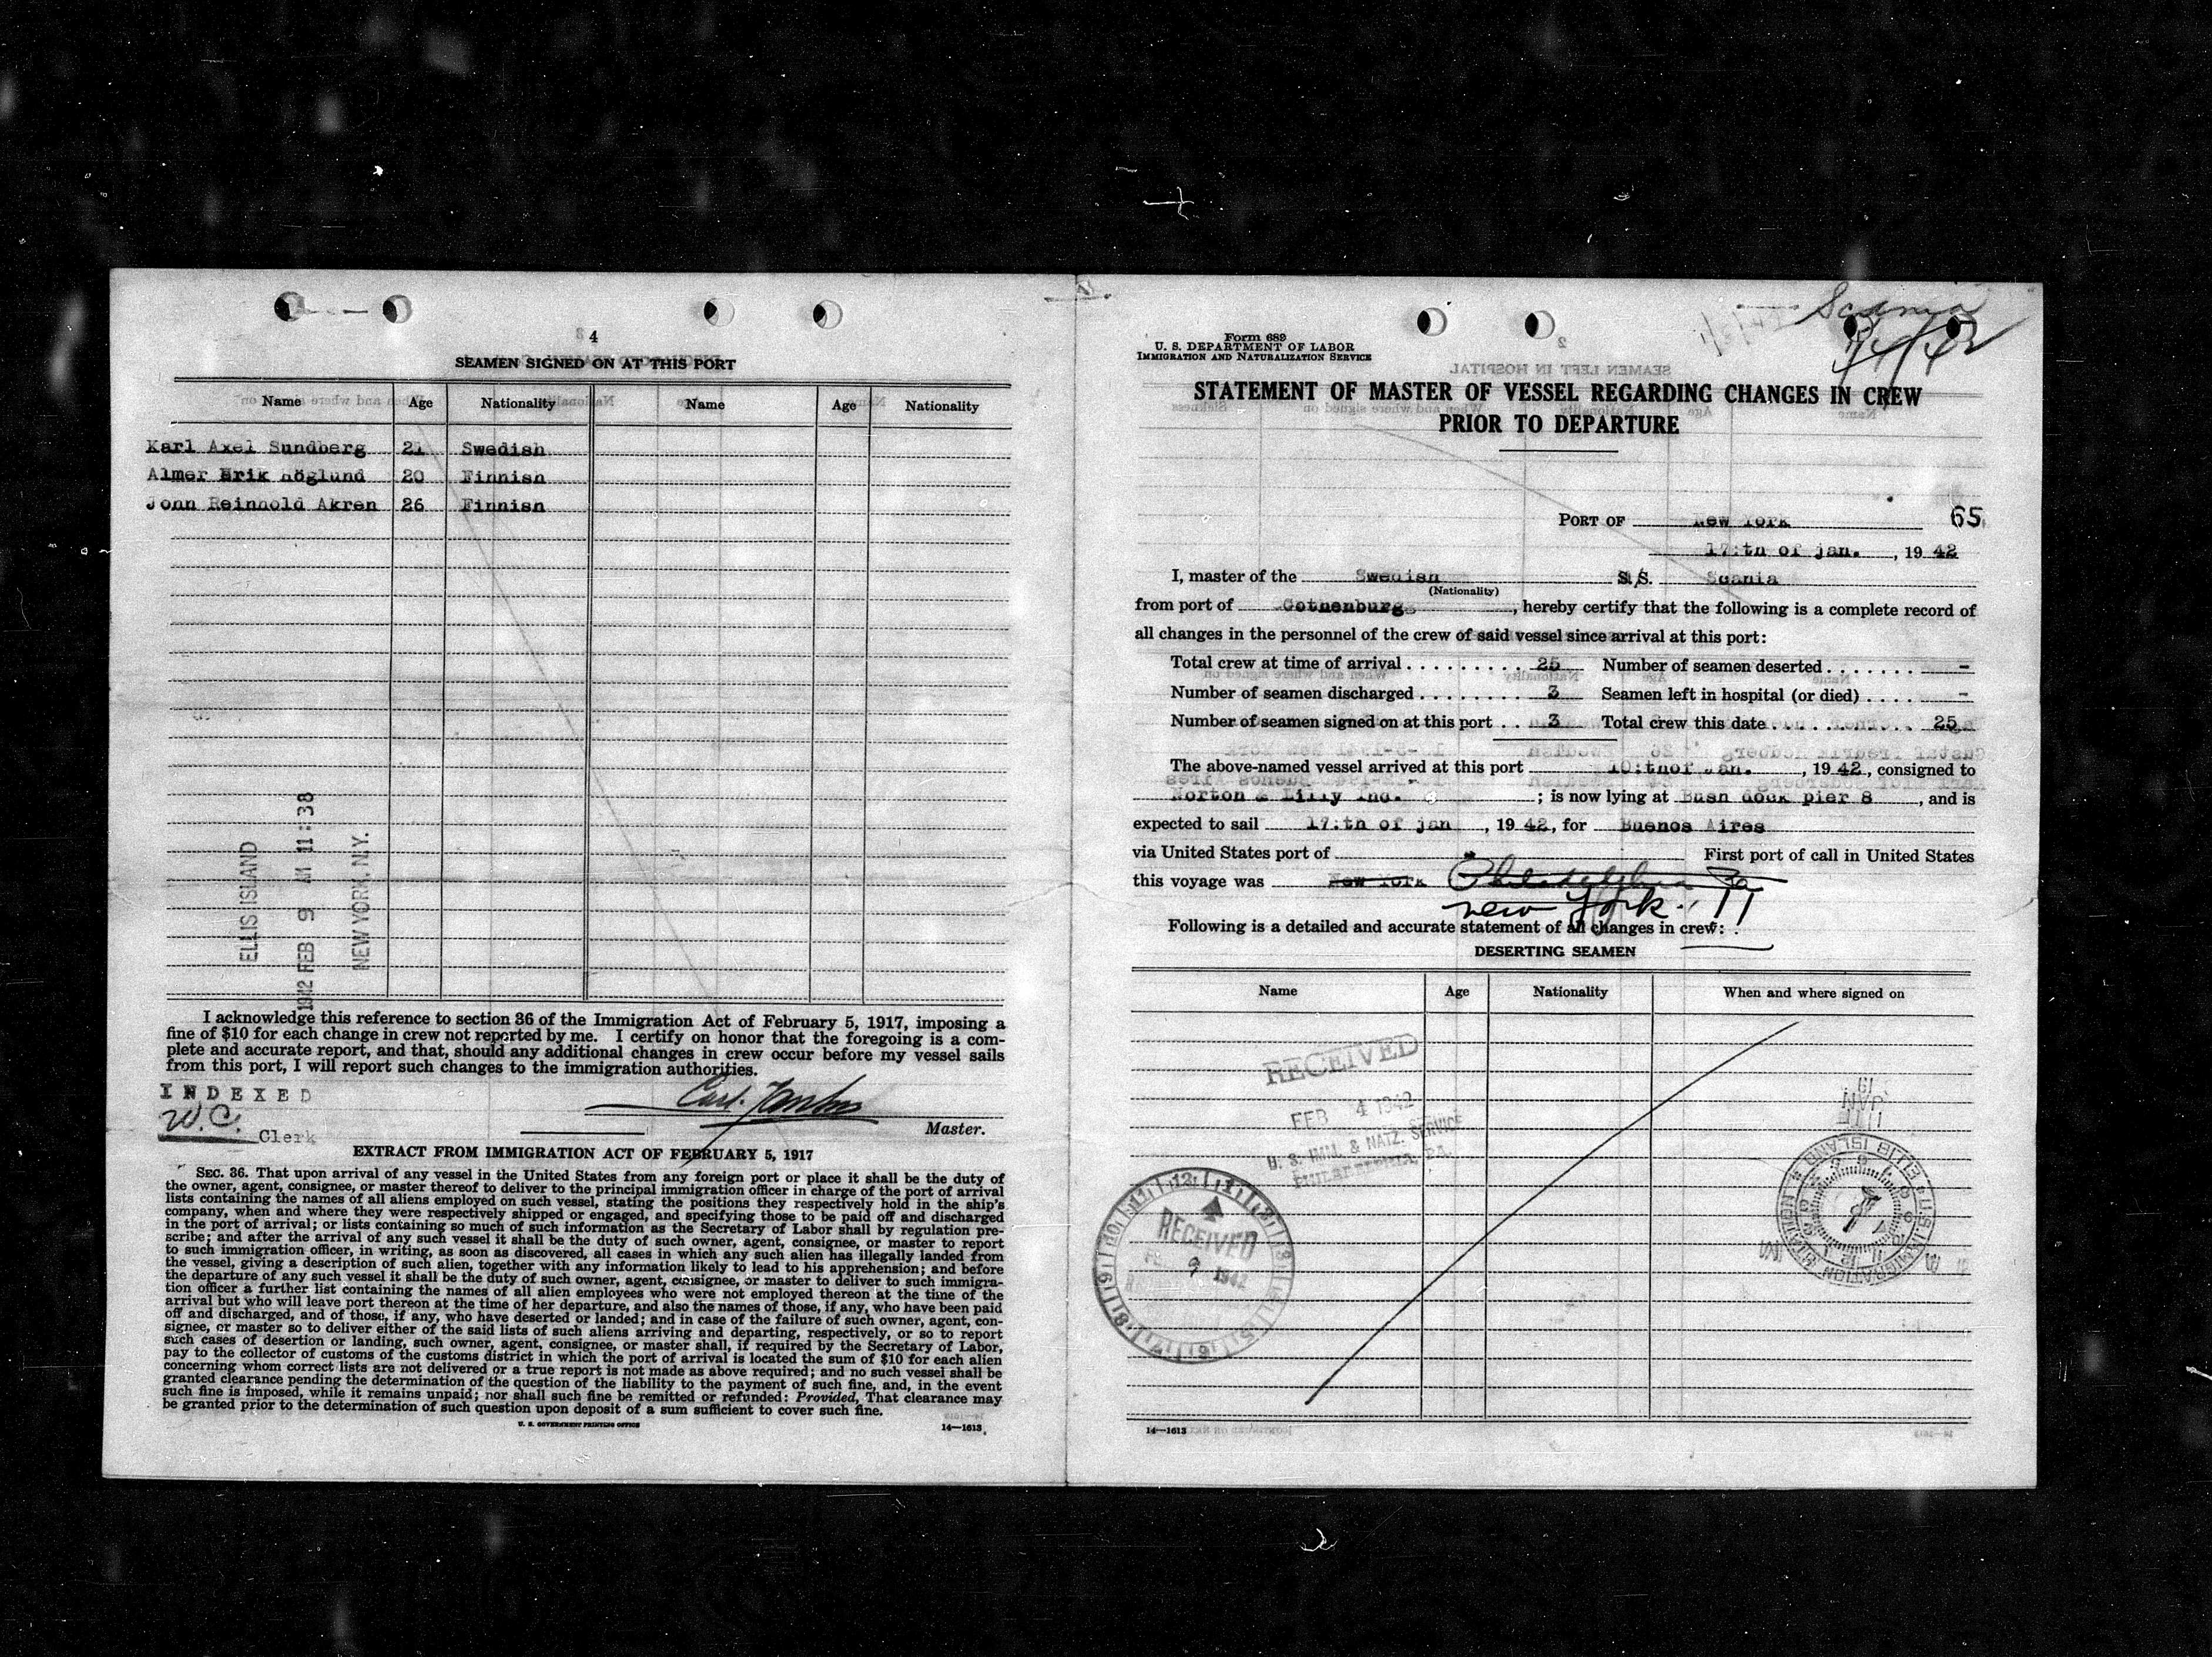 4
SEAMEN SIGNED ON AT THIS PORT
Name Age Nationality Name Age Nationality
Karl Axel Sundberg 21 Swedish
Almer Erik Höglund 20 Finnish
John Reinhold Akren 26 Finnish
ELLIS ISLAND
1942 FEB 9 AM 11:38
NEW YORK, N.Y.
I acknowledge this reference to section 36 of the Immigration Act of February 5, 1917, imposing a
fine of $10 for each change in crew not reported by me. I certify on honor that the foregoing is a com-
plete and accurate report, and that, should any additional changes in crew occur before my vessel sails
from this port, I will report such changes to the immigration authorities.
INDEXED
W.C. Clerk
Carl
Master.
EXTRACT FROM IMMIGRATION ACT OF FEBRUARY 5, 1917
SEC. 36. That upon arrival of any vessel in the United States from any foreign port or place it shall be the duty of
the owner, agent, consignee, or master thereof to deliver to the principal immigration officer in charge of the port of arrival
lists containing the names of all aliens employed on such vessel, stating the positions they respectively hold in the ship's
company, when and where they were respectively shipped or engaged, and specifying those to be paid off and discharged
in the port of arrival; or lists containing so much of such information as the Secretary of Labor shall by regulation pre-
scribe; and after the arrival of any such vessel it shall be the duty of such owner, agent, consignee, or master to report
to such immigration officer, in writing, as soon as discovered, all cases in which any such alien has illegally landed from
the vessel, giving a description of such alien, together with any information likely to lead to his apprehension; and before
the departure of any such vessel it shall be the duty of such owner, agent, consignee, or master to deliver to such immigra-
tion officer a further list containing the names of all alien employees who were not employed thereon at the time of the
arrival but who will leave port thereon at the time of her departure, and also the names of those, if any, who have been paid
off and discharged, and of those, if any, who have deserted or landed; and in case of the failure of such owner, agent, con-
signee, or master so to deliver either of the said lists of such aliens arriving and departing, respectively, or so to report
such cases of desertion or landing, such owner, agent, consignee, or master shall, if required by the Secretary of Labor,
pay to the collector of customs of the customs district in which the port of arrival is located the sum of $10 for each alien
concerning whom correct lists are not delivered or a true report is not made as above required; and no such vessel shall be
granted clearance pending the determination of the question of the liability to the payment of such fine, and, in the event
such fine is imposed, while it remains unpaid; nor shall such fine be remitted or refunded: Provided, That clearance may
be granted prior to the determination of such question upon deposit of a sum sufficient to cover such fine.
U. S. GOVERNMENT PRINTING OFFICE
14—1613
Scania
Form 689
U. S. DEPARTMENT OF LABOR
IMMIGRATION AND NATURALIZATION SERVICE
STATEMENT OF MASTER OF VESSEL REGARDING CHANGES IN CREW
PRIOR TO DEPARTURE
PORT OF New York 65
17:th of jan. , 19 42
I, master of the Swedish S/S. Scania
(Nationality)
from port of Gothenburg , hereby certify that the following is a complete record of
all changes in the personnel of the crew of said vessel since arrival at this port:
Total crew at time of arrival 25 Number of seamen deserted -
Number of seamen discharged 3 Seamen left in hospital (or died) -
Number of seamen signed on at this port 3 Total crew this date 25
The above-named vessel arrived at this port 10:thof Jan. , 19 42, consigned to
Norton & Lilly Inc. ; is now lying at Bush dock pier 8 , and is
expected to sail 17:th of jan , 19 42, for Buenos Aires
via United States port of First port of call in United States
this voyage was New York Philadelphia Pa
New York.
Following is a detailed and accurate statement of all changes in crew:
DESERTING SEAMEN
Name Age Nationality When and where signed on
RECEIVED
FEB 4 1942
U. S. IMM. & NATZ. SERVICE
PHILADELPHIA, PA.
RECEIVED
9 1942
14—1613